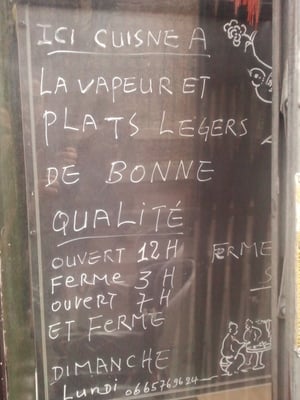 ICI CUISNE A
LA VAPEUR ET
PLATS LEGERS
DE BONNE
QUALITÉ
OUVERT 12 H
FERME 3 H
OUVERT 7 H
ET FERME
DIMANCHE
LUNDI 0665769694
FERME
S